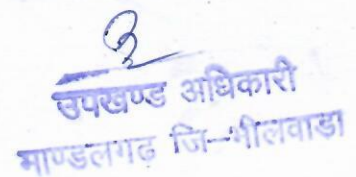 उपखण्ड अधिकारी
माण्डलगढ़ जि-भीलवाडा